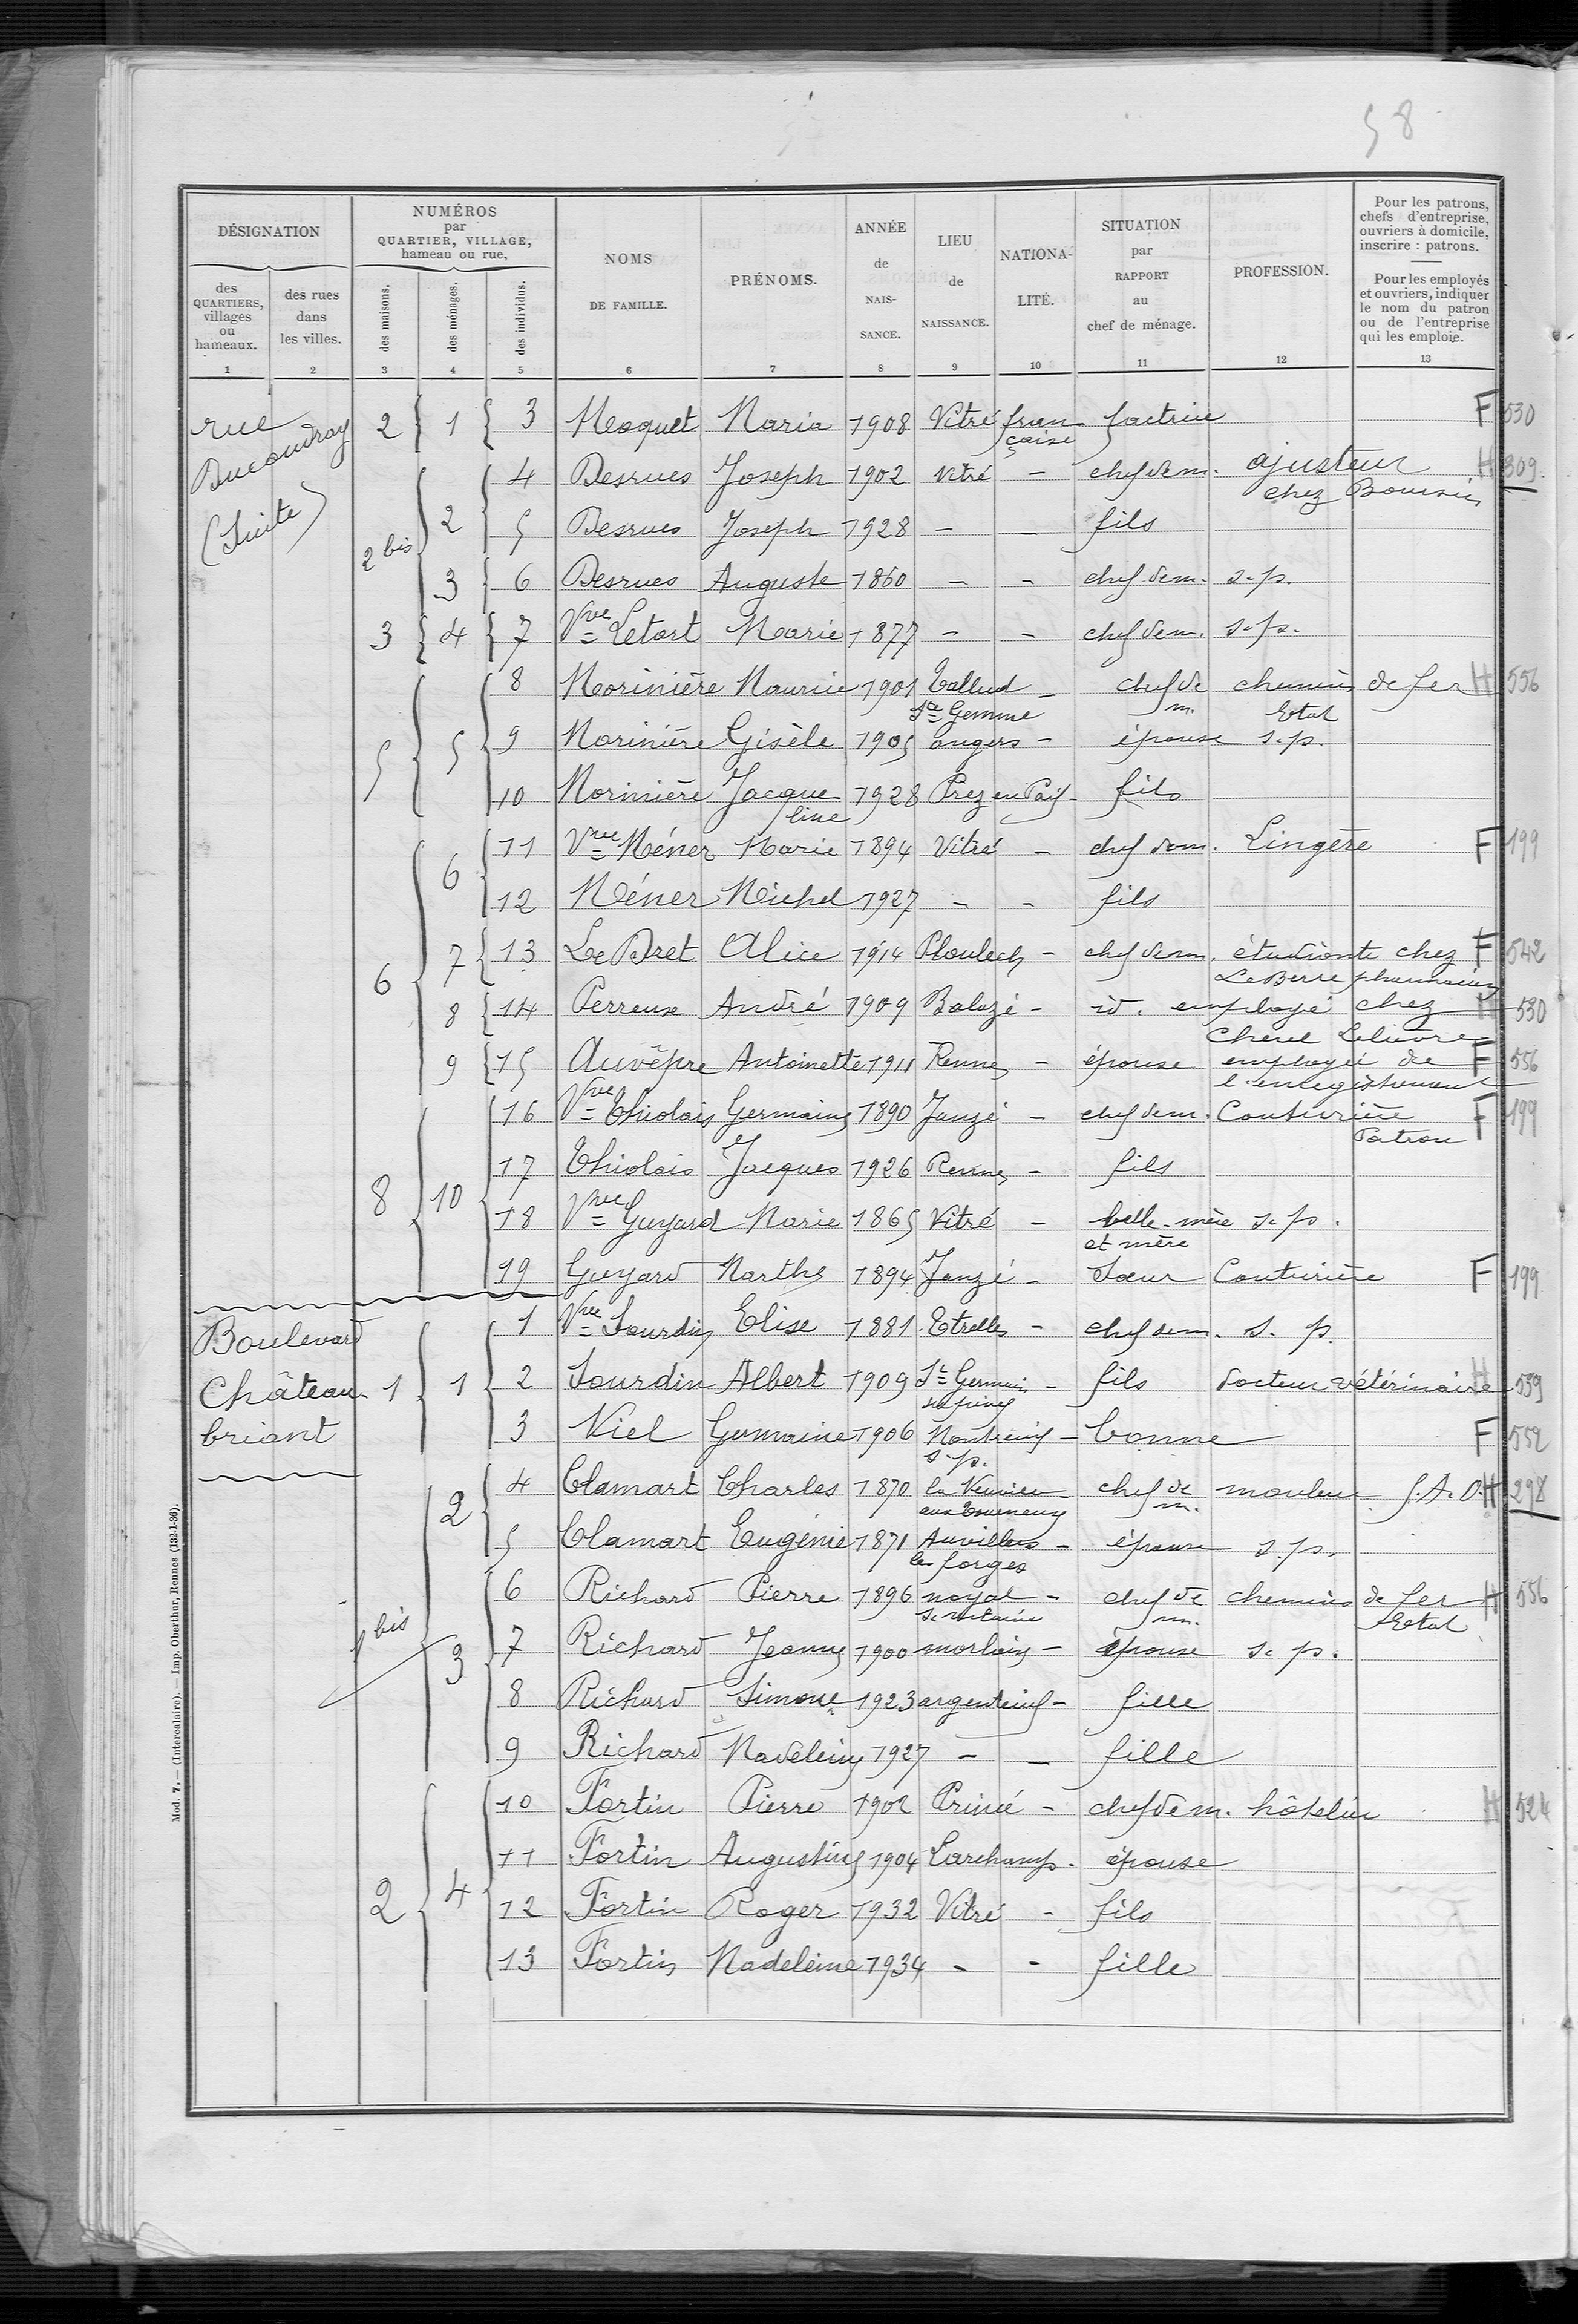 58
DÉSIGNATION
des QUARTIERS, villages ou hameaux.
des rues dans les villes.
NUMÉROS par QUARTIER, VILLAGE, hameau ou rue,
des maisons.
des ménages.
des individus.
NOMS DE FAMILLE.
PRÉNOMS.
ANNÉE de NAIS-SANCE.
LIEU de NAISSANCE.
NATIONA-LITÉ.
SITUATION par RAPPORT au chef de ménage.
PROFESSION.
Pour les patrons, chefs d'entreprise, ouvriers à domicile, inscrire : patrons.
Pour les employés et ouvriers, indiquer le nom du patron ou de l'entreprise qui les emploie.
1 2 3 4 5 6 7 8 9 10 11 12 13
rue Ducoudray (Suite)
2 1 3 Moquet Maria 1908 Vitré française factrice F 530
2 bis 2 4 Desrues Joseph 1902 Vitré - chef de m. ajusteur chez Boursin H 309
5 Desrues Joseph 1928 - - fils
3 6 Desrues Auguste 1860 - - chef de m. s.p.
3 4 7 Vve Letort Marie 1877 - - chef de m. s.p.
5 5 8 Morinière Maurice 1901 Tallud Ste Gemme - chef de m. chemins de fer Etat H 556
9 Morinière Gisèle 1905 angers - épouse s.p.
10 Morinière Jacqueline 1928 Prez en Pail - fils
6 6 11 Vve Méner Marie 1894 Vitré - chef de m. Lingère F 199
12 Méner Michel 1927 - - fils
7 13 Le Bret Alice 1914 Ploulech - chef de m. étudiante chez Le Berre pharmacien F 542
8 14 Perreux André 1909 Balazé - id. employé chez Cherel Lelièvre H 530
9 15 Auvêpre Antoinette 1911 Rennes - épouse employée de l'enregistrement F 556
8 10 16 Vve Thiolais Germaine 1890 Janzé - chef de m. Couturière Patron F 199
17 Thiolais Jacques 1926 Rennes - fils
18 Vve Guyard Marie 1865 Vitré - belle-mère et mère s.p.
19 Guyard Marthe 1894 Janzé - soeur Couturière F 199
Boulevard Château-briant
1 1 1 Vve Sourdin Elise 1881 Etrelles - chef de m. s. p.
2 Sourdin Albert 1909 St Germain du pinel - fils docteur vétérinaire H 539
3 Viel Germaine 1906 Montreuil s.p. - bonne F 552
1 bis 2 4 Clamart Charles 1870 la aux - chef de m. mouleur S.A.O. H 298
5 Clamart Eugénie 1871 Auvillers les forges - épouse s.p.
3 6 Richard Pierre 1896 noyal s. vilaine - chef de m. chemins de fer Etat H 556
7 Richard Jeanne 1900 morlaix - épouse s.p.
8 Richard Simone 1923 argenteuil - fille
9 Richard Madeleine 1927 - - fille
2 4 10 Fortin Pierre 1902 Princé - chef de m. hôtelier H 524
11 Fortin Augustine 1904 Larchamp - épouse
12 Fortin Roger 1932 Vitré - fils
13 Fortin Madeleine 1934 - - fille
Mod. 7. — (Intercalaire). — Imp. Oberthur, Rennes (132-1-36).